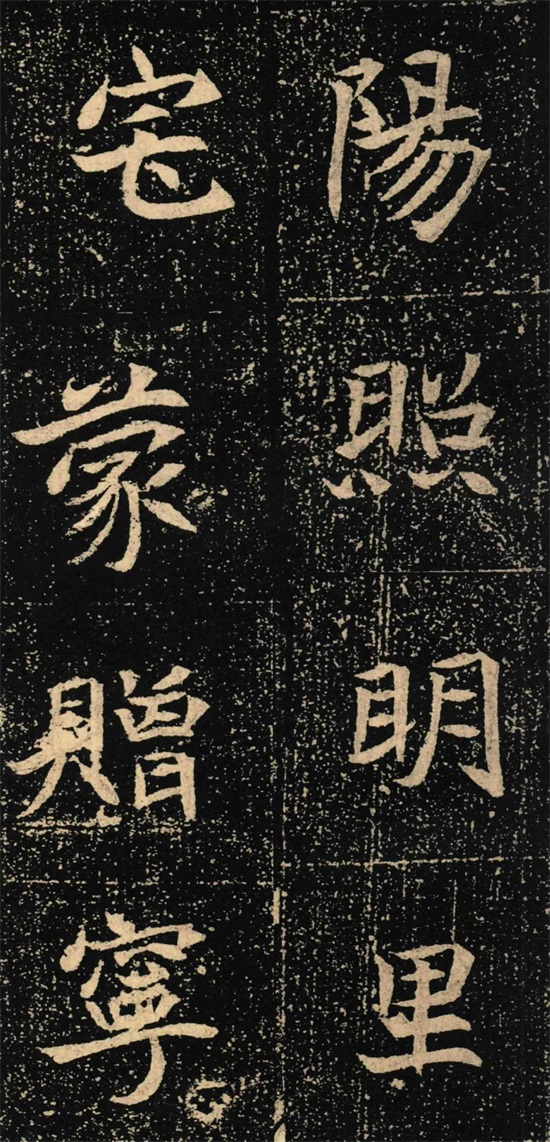 陽照明里
宅蒙贈寧